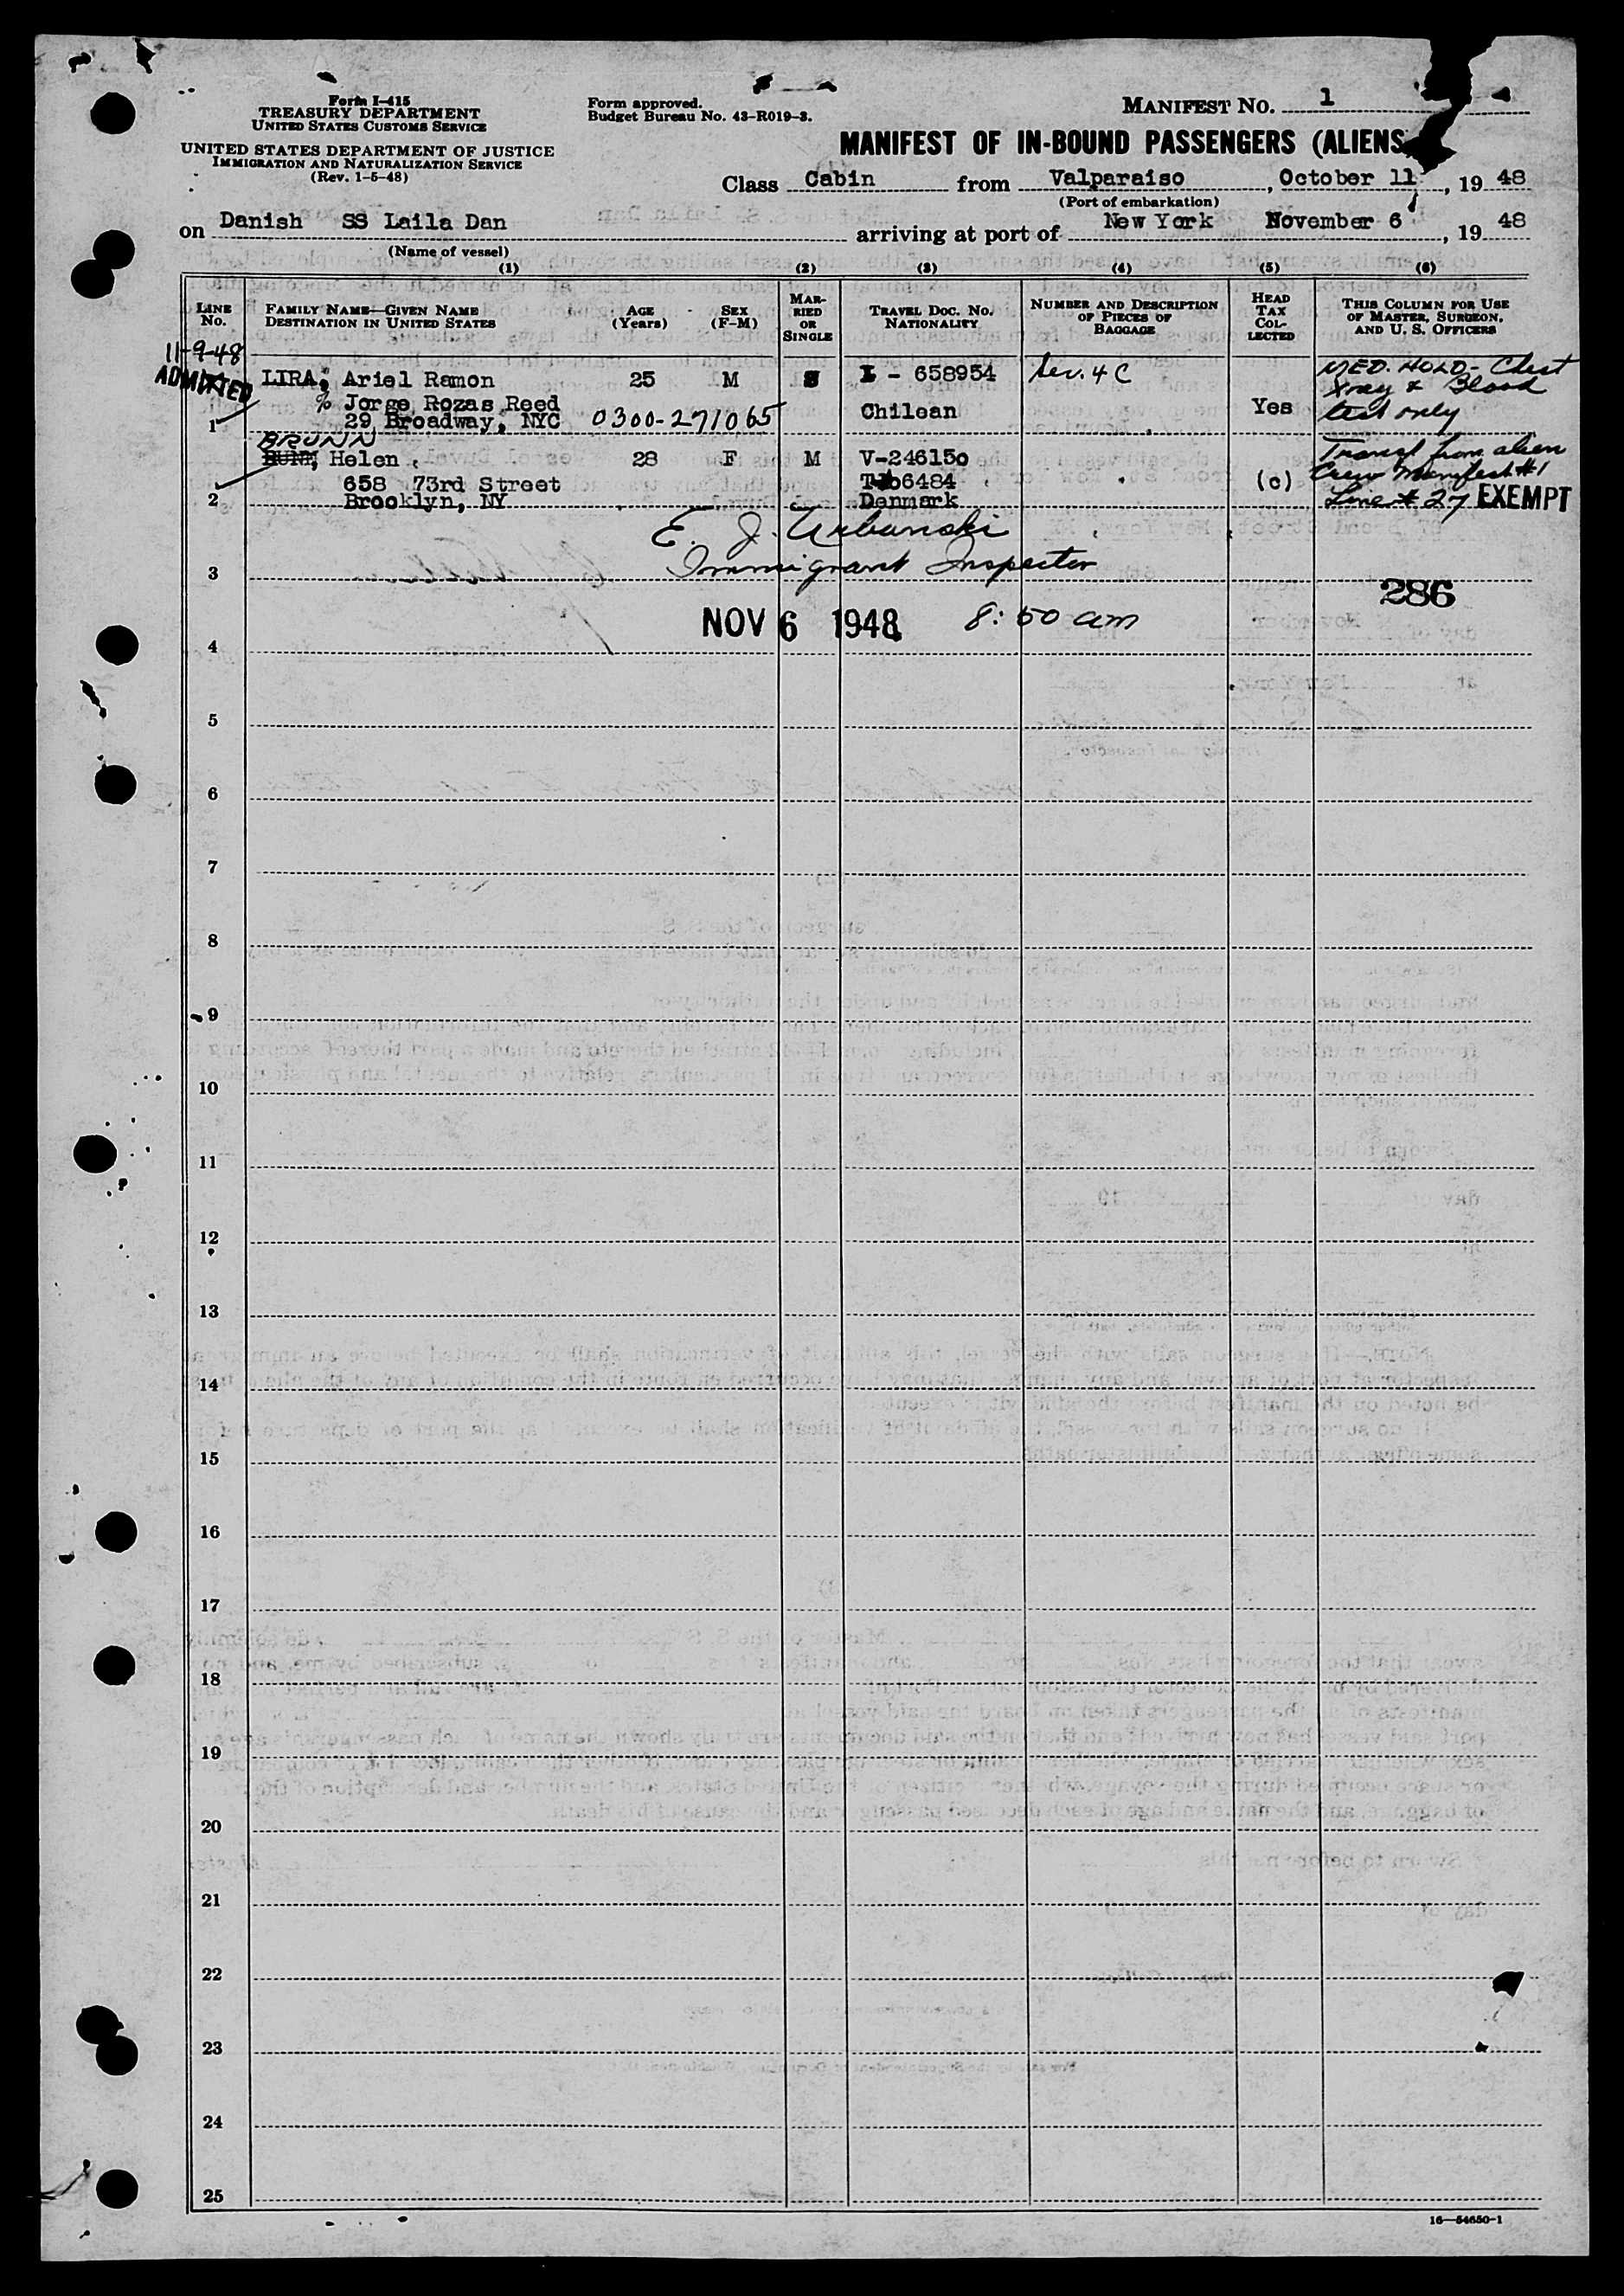 Form I-415
TREASURY DEPARTMENT
UNITED STATES CUSTOMS SERVICE
UNITED STATES DEPARTMENT OF JUSTICE
IMMIGRATION AND NATURALIZATION SERVICE
(Rev. 1-5-48)
Form approved.
Budget Bureau No. 43-R019-3.
MANIFEST NO. 1
MANIFEST OF IN-BOUND PASSENGERS (ALIENS
Class Cabin from Valparaiso, October 11, 19 48
(Port of embarkation)
on Danish SS Laila Dan arriving at port of New York November 6, 19 48
(Name of vessel)
(1) (2) (3) (4) (5) (6)
LINE No. FAMILY NAME—GIVEN NAME DESTINATION IN UNITED STATES AGE (Years) SEX (F-M) MARRIED OR SINGLE TRAVEL DOC. NO. NATIONALITY NUMBER AND DESCRIPTION OF PIECES OF BAGGAGE HEAD TAX COLLECTED THIS COLUMN FOR USE OF MASTER, SURGEON, AND U. S. OFFICERS
11-9-48
ADMITTED
LIRA, Ariel Ramon 25 M S I - 658954 Sec. 4 C MED. HOLD - Chest
% Jorge Rozas Reed Xray & Blood
1 29 Broadway, NYC 0300-271065 Chilean Yes test only
BRUNN
BUNN, Helen 28 F M V-246150 Transf from alien
658 73rd Street 6484 (c) Crew Manifest #1
2 Brooklyn, NY Denmark Line # 27 EXEMPT
E. J. Urbanski
3 Immigrant Inspector
286
NOV 6 1948 8:50 am
4
5
6
7
8
9
10
11
12
13
14
15
16
17
18
19
20
21
22
23
24
25
16—54650-1